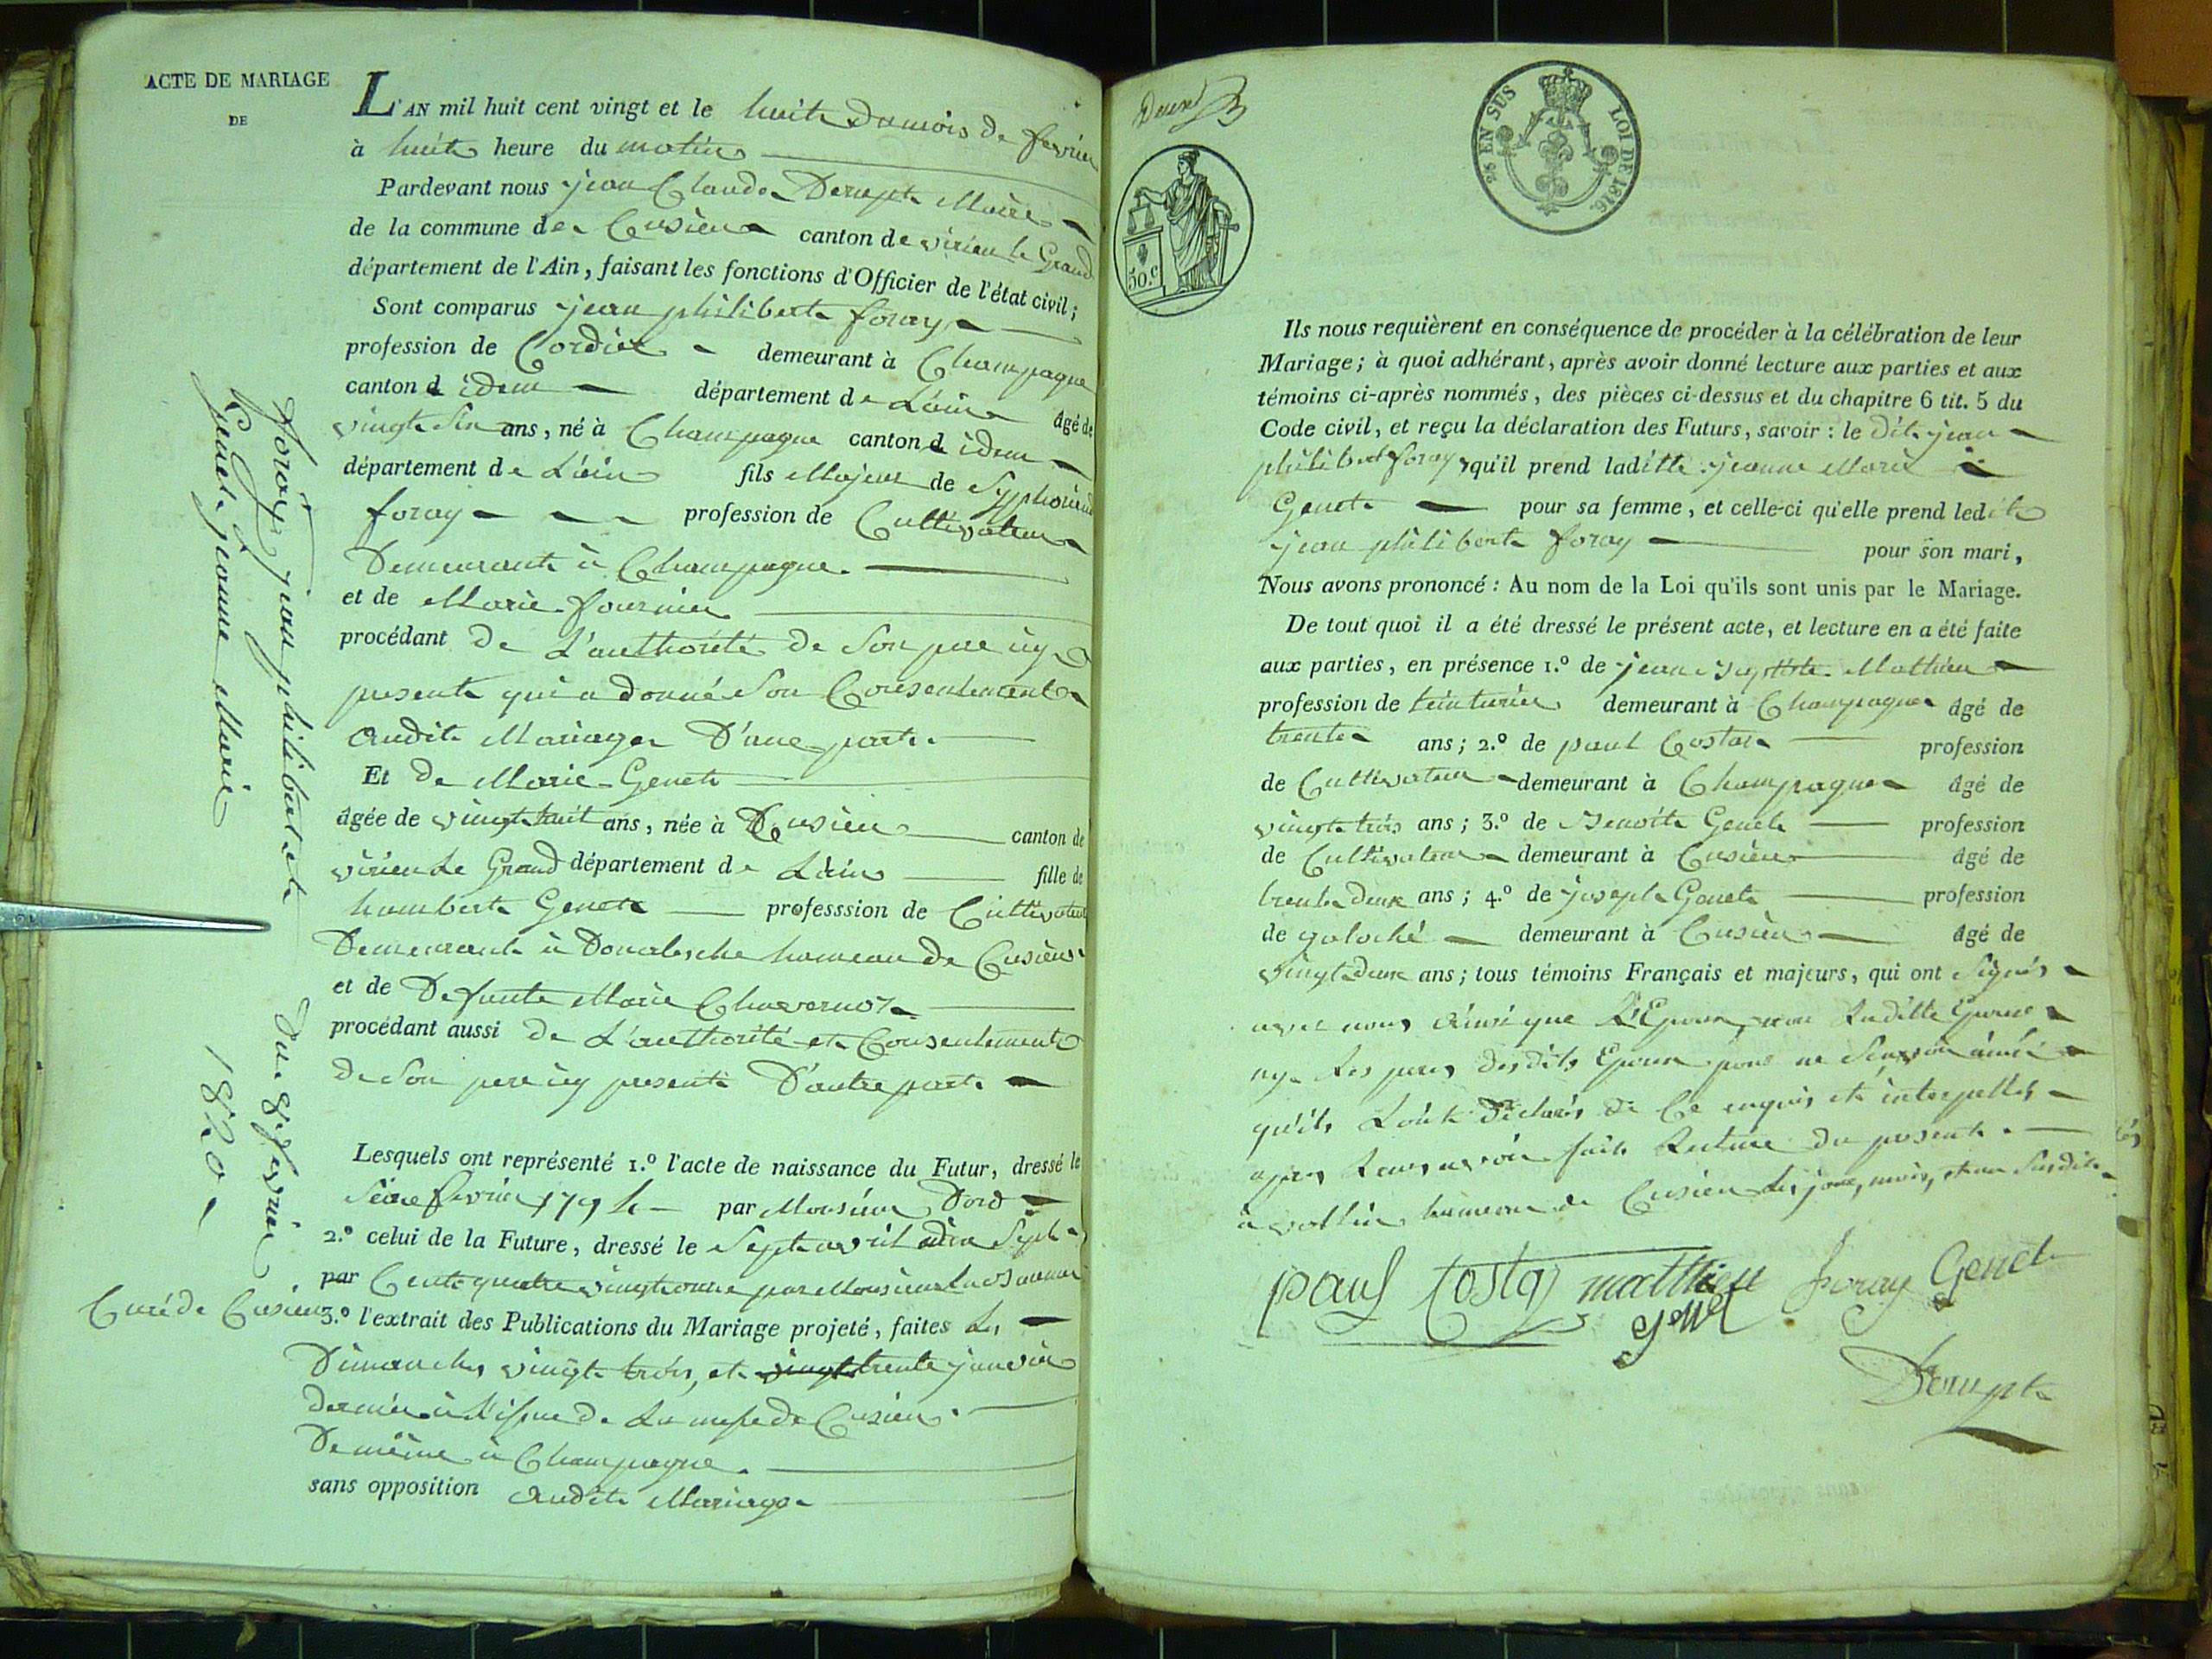 ACTE DE MARIAGE
DE
foray jean philiberte et
Genet jeanne Marie
Du 8 fevrier
1820
L'AN mil huit cent vingt et le huit du mois de fevrier
à huit heure du matin
Pardevant nous jean Claude Derupt Maire
de la commune de Cusieu canton de virieu le Grand
département de l'Ain, faisant les fonctions d'Officier de l'état civil;
Sont comparus jean philibert foray
profession de Cordier demeurant à Champagne
canton d idem département de L'ain âgé de
vingt six ans, né à Champagne canton d idem
département de L'ain fils Majeur de Sypphorien
foray profession de Cultivateur
Demeurant à Champagne.
et de Marie fournier
procédant de L'authorité de Son pere icy
present qui a donné Son Consentement
audit Mariage D'une part.
Et de Marie Genet
âgée de vingt huit ans, née à Cusieu canton de
virieu Le Grand département de L'ain fille de
humbert Genet professsion de Cultivateur
Demeurant à hameau de Cusieu
et de Defunte Marie
procédant aussi de L'authorité et Consentement
de Son pere icy present D'autre part
Lesquels ont représenté 1.º l'acte de naissance du Futur, dressé le
Seize fevrier 179 par Monsieur Dord
2.º celui de la Future, dressé le Sept avril Sept
par Cent quatre vingt onze par Monsieur
Curé de Cusieu 3.º l'extrait des Publications du Mariage projeté, faites Les
Dimanches vingt trois, et vingt trente janvier
dernier à L'issue de La messe de Cusieu.
De même à Champagne.
sans opposition audit Mariage
25 EN SUS LOI DE 1816.
50.c
Ils nous requièrent en conséquence de procéder à la célébration de leur
Mariage; à quoi adhérant, après avoir donné lecture aux parties et aux
témoins ci-après nommés, des pièces ci-dessus et du chapitre 6 tit. 5 du
Code civil, et reçu la déclaration des Futurs, savoir: le dit jean
philibert foray, qu'il prend laditte jeanne Marie
Genet pour sa femme, et celle-ci qu'elle prend ledit
jean philibert foray pour son mari,
Nous avons prononcé: Au nom de la Loi qu'ils sont unis par le Mariage.
De tout quoi il a été dressé le présent acte, et lecture en a été faite
aux parties, en présence 1.º de jean Mathieu
profession de teinturier demeurant à Champagne âgé de
trente ans; 2.º de paul Costaz profession
de Cultivateur demeurant à Champagne âgé de
vingt trois ans; 3.º de Benoit Genet profession
de Cultivateur demeurant à Cusieu âgé de
trente deux ans; 4.º de joseph Genet profession
de galoché demeurant à Cusieu âgé de
vingt deux ans; tous témoins Français et majeurs, qui ont Signés
avec nous ainsi que L'Epoux, non Laditte Epouse
ny Les peres desdits Epoux pour ne
qu'ils L'ont déclarés de Ce enquis et interpellés
apres Leurs avoir fait Lecture du present.
à vollien hameau de Cusieu Les jour, mois, et an Susdits
paul Costaz matthieu foray Genet
Genet
Derupt